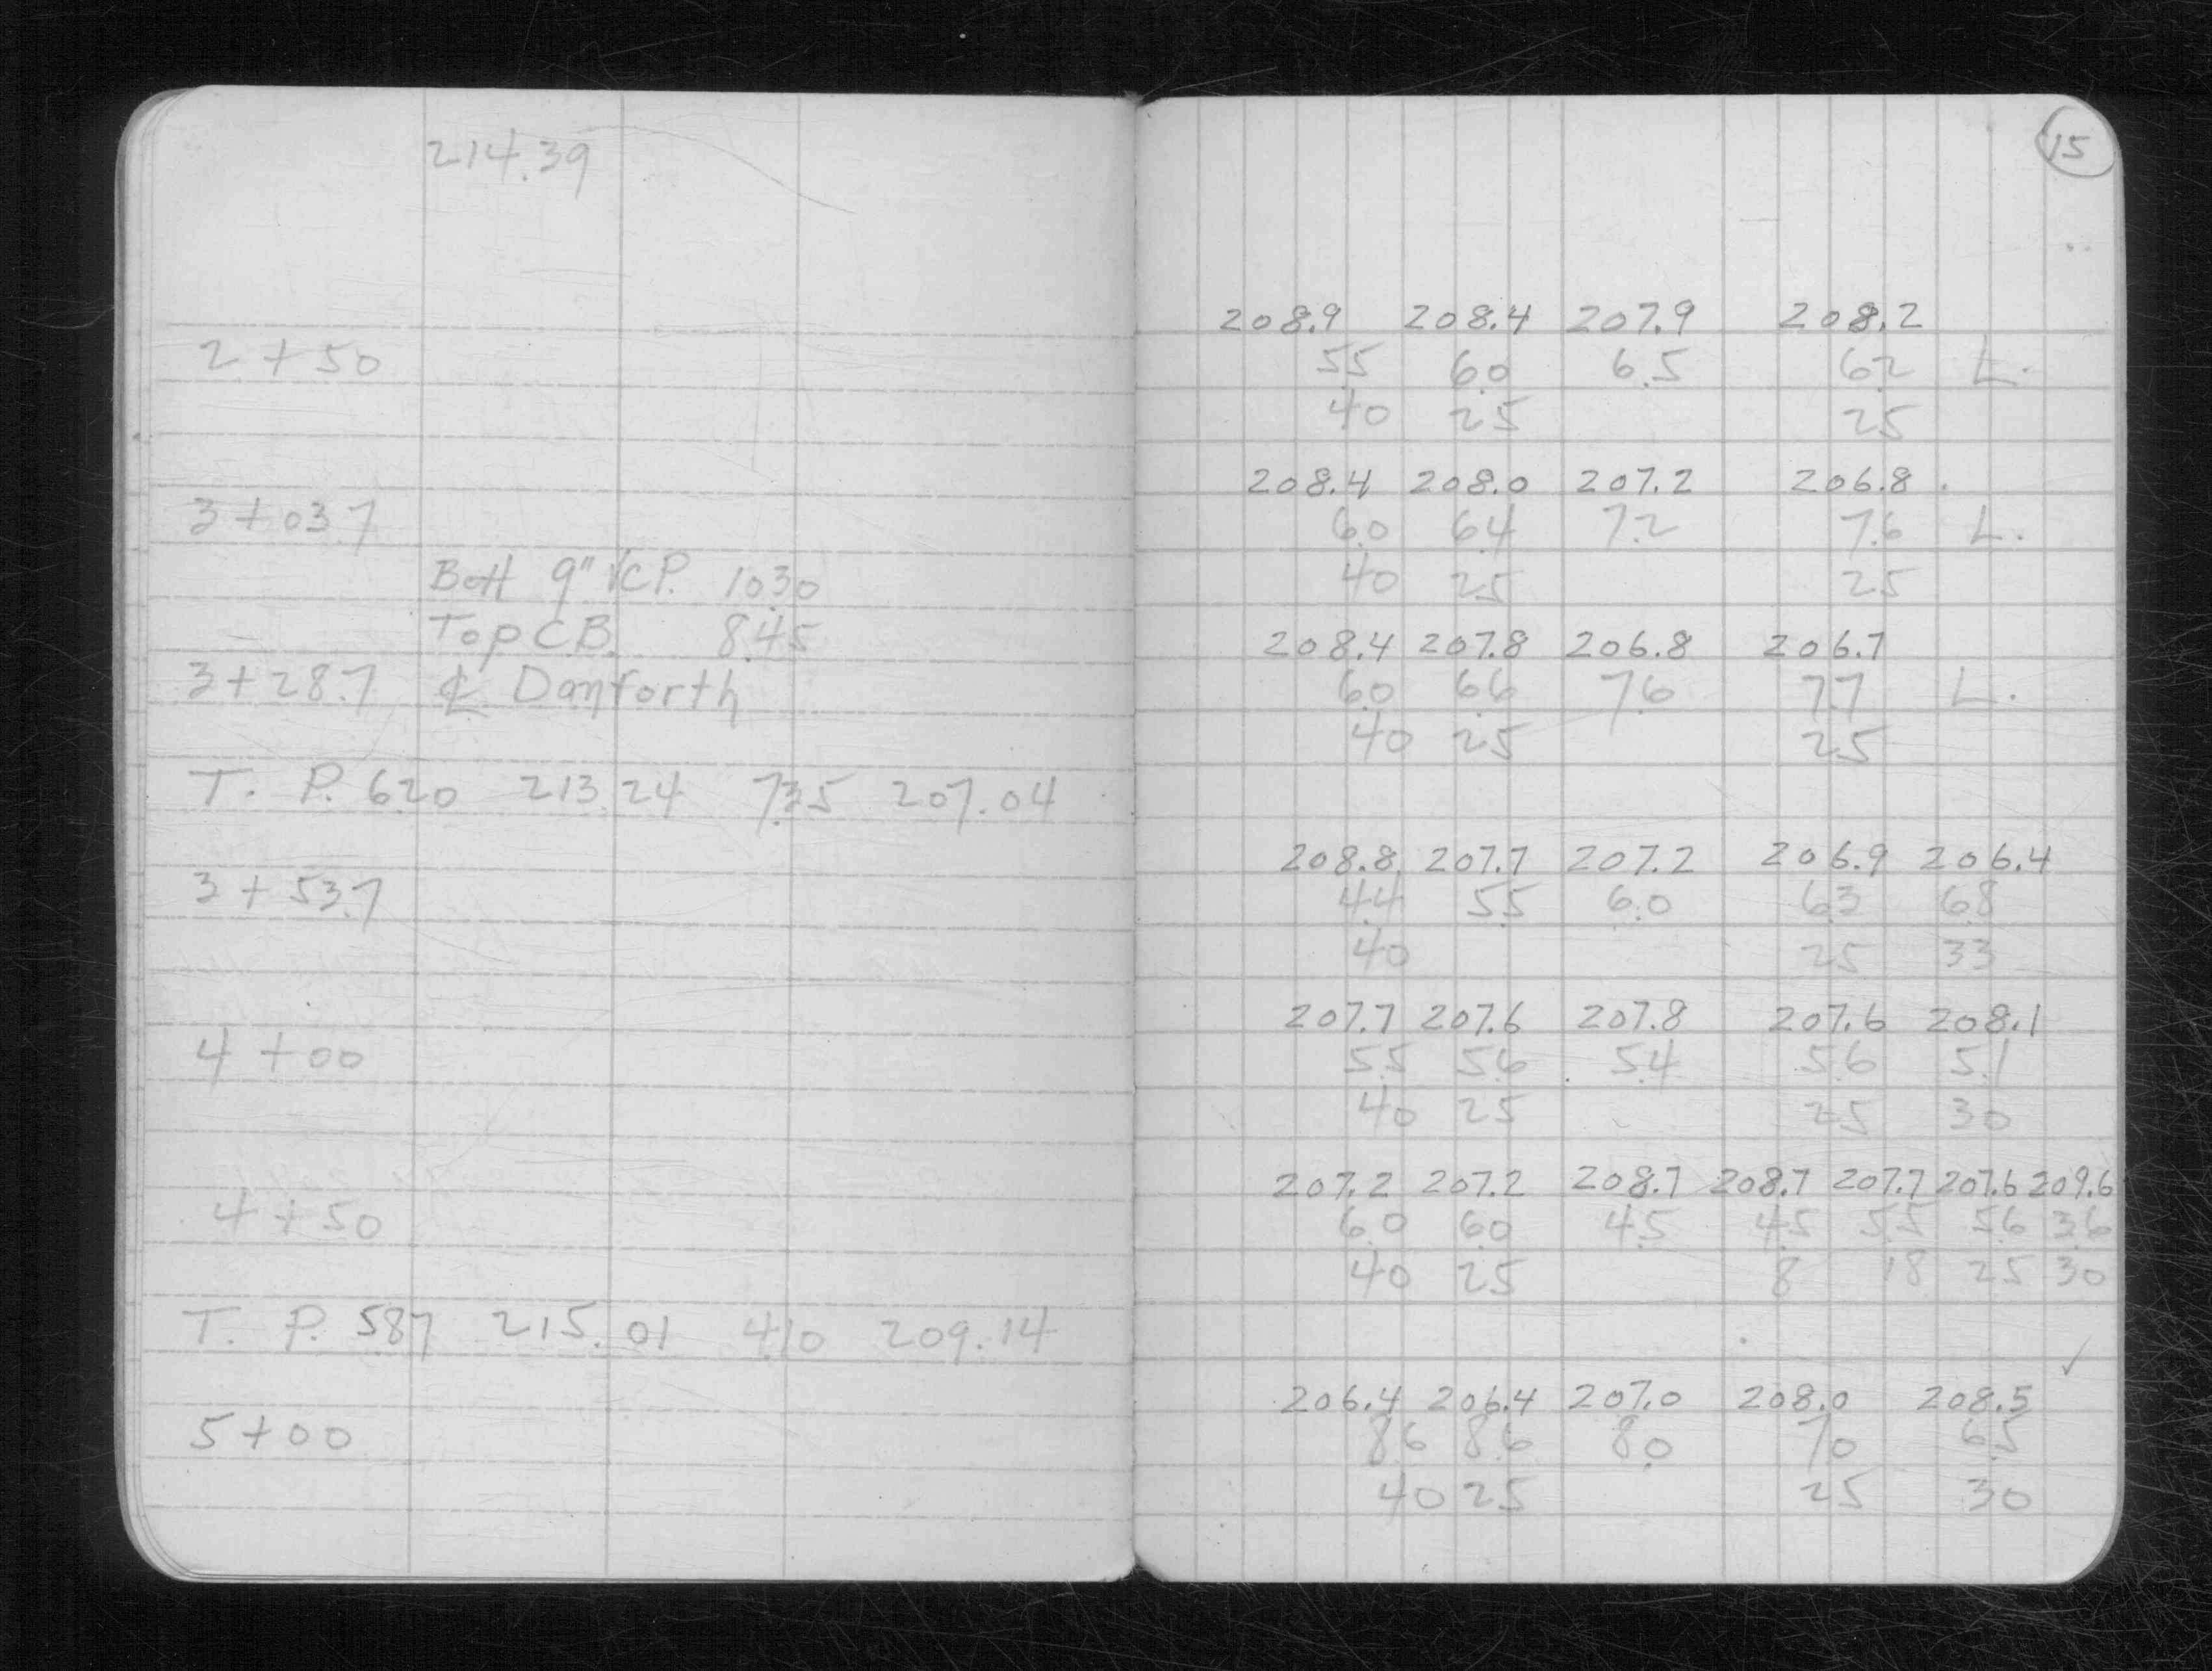 214.39
15
208.9 208.4 207.9 208.2
2+50 5.5 6.0 6.5 6.2 L.
40 25 25
208.4 208.0 207.2 206.8
3+03.7 6.0 6.4 7.2 7.6 L.
Bott 9" V.C.P. 10.30 40 25 25
Top C.B. 8.45 208.4 207.8 206.8 206.7
3+28.7 ℄ Danforth 6.0 6.6 7.6 7.7 L.
40 25 25
T. P. 6.20 213.24 7.35 207.04
208.8 207.7 207.2 206.9 206.4
3+53.7 4.4 5.5 6.0 6.3 6.8
40 25 33
207.7 207.6 207.8 207.6 208.1
4+00 5.5 5.6 5.4 5.6 5.1
40 25 25 30
207.2 207.2 208.7 208.7 207.7 207.6 209.6
4+50 6.0 6.0 4.5 4.5 5.5 5.6 3.6
40 25 8 18 25 30
T. P. 5.87 215.01 4.10 209.14 ✓
206.4 206.4 207.0 208.0 208.5
5+00 8.6 8.6 8.0 7.0 6.5
40 25 25 30